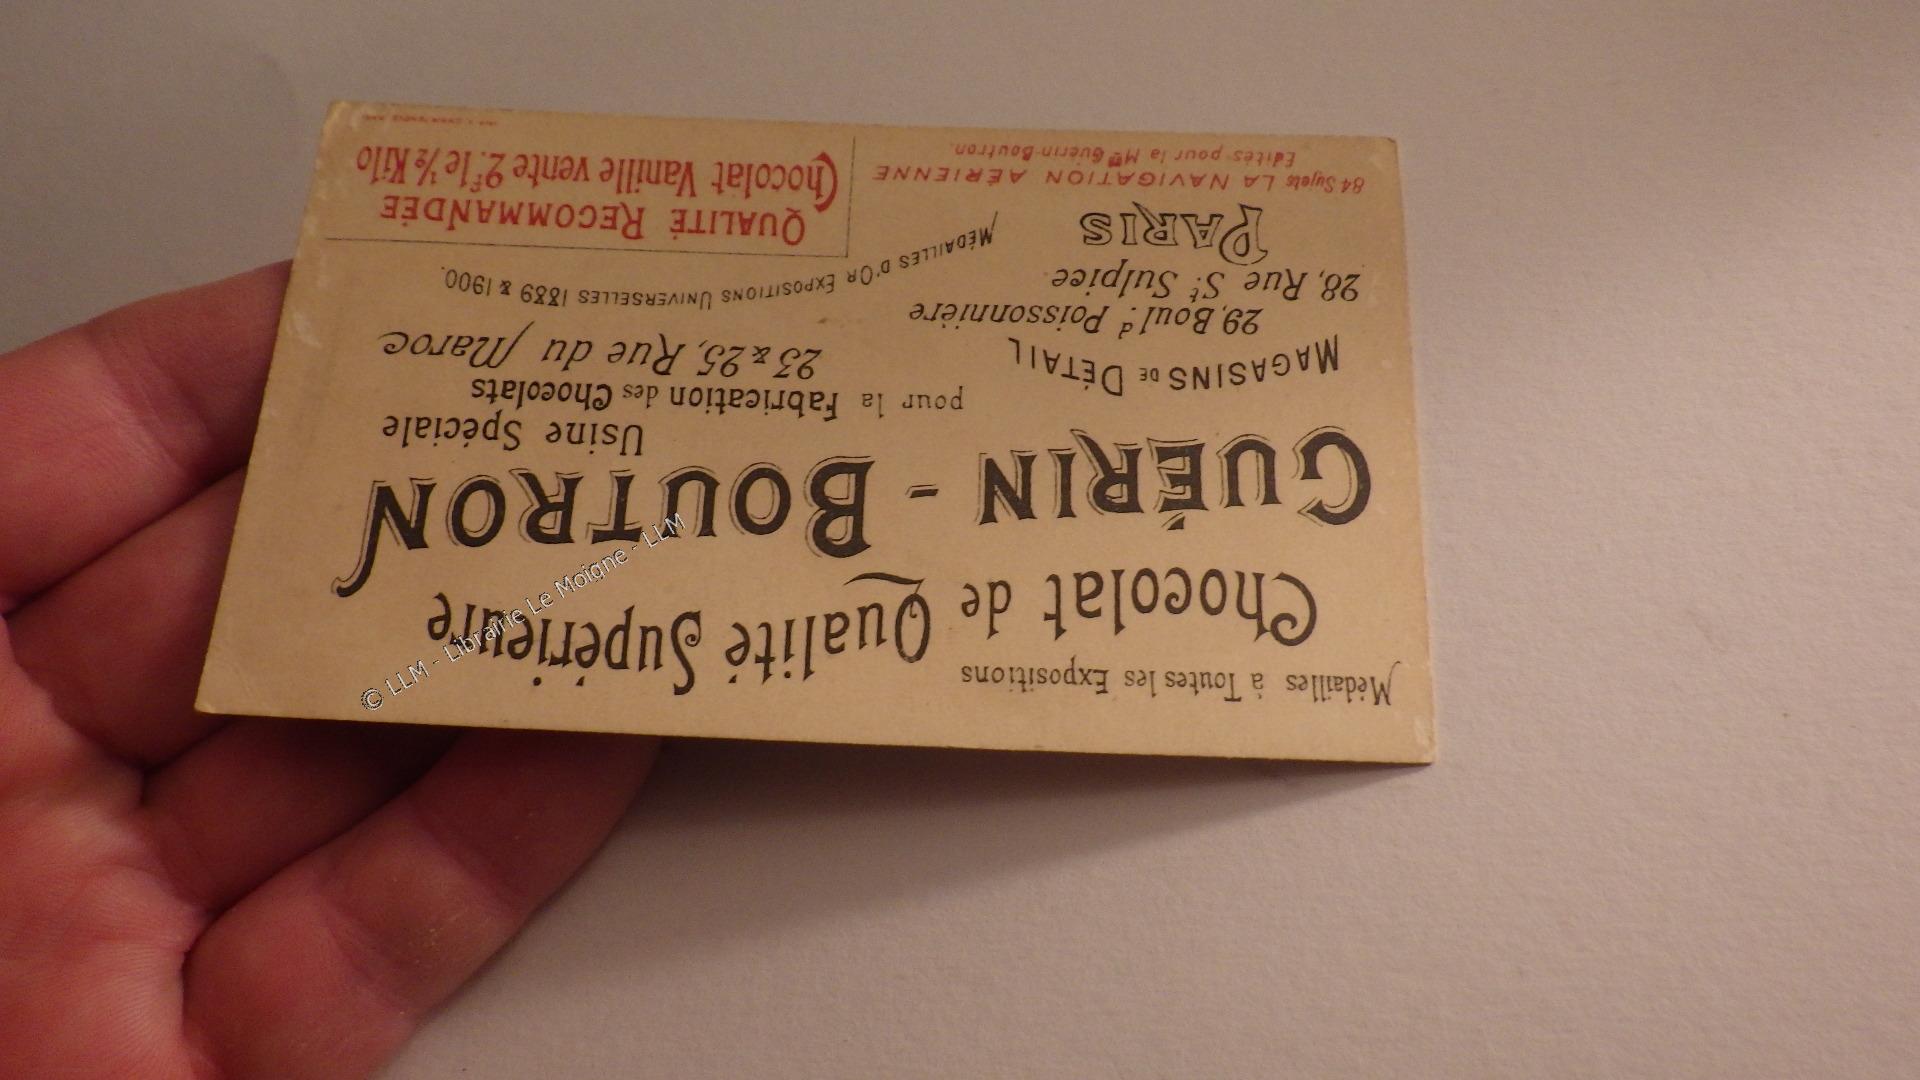 Médailles à Toutes les Expositions
Chocolat de Qualité Supérieure
GUÉRIN - BOUTRON
MAGASINS DE DÉTAIL
29, Boul.d Poissonnière
28, Rue St. Sulpice
PARIS
Usine Spéciale
pour la Fabrication des Chocolats
23 & 25, Rue du Maroc
MÉDAILLES D'OR EXPOSITIONS UNIVERSELLES 1889 & 1900.
84 Sujets LA NAVIGATION AÉRIENNE
Edités pour la Mon Guérin-Boutron.
QUALITÉ RECOMMANDÉE
Chocolat Vanille vente 2f. le ½ Kilo
© LLM - Librairie Le Moigne - LLM